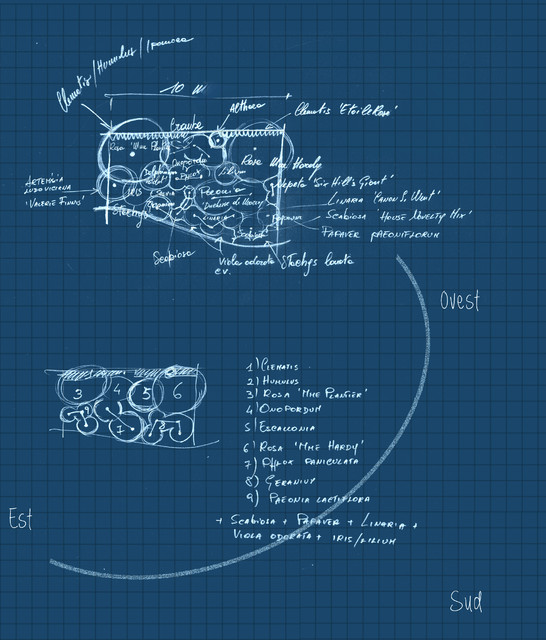 Clematis/Humulus/Ipomoea
10 m
Althaea
Crambe
Clematis 'Etoile Rose'
Rosa 'Mme Plantier'
Onopordum
Rosa Mme Hardy
Lilium
Phlox
Nepeta 'Sir Hill's Giant'
ARTEMISIA
LUDOVICIANA
'VALERIE FINNIS'
Paeonia
'Duchesse de Nemours'
LINARIA
LINARIA 'CANON S. WENT'
SCABIOSA 'HOUSE NOVELTY MIX'
PAPAVER PAEONIFLORUM
Stachys
Scabiosa
Viola odorata
cv.
Stachys lanata
Ovest
1) CLEMATIS
2) HUMULUS
3) ROSA 'MME PLANTIER'
4) ONOPORDUM
5) ESCALLONIA
6) ROSA 'MME HARDY'
7) PHLOX PANICULATA
8) GERANIUM
9) PAEONIA LACTIFLORA
3 4 5 6
7
+ SCABIOSA + PAPAVER + LINARIA +
VIOLA ODORATA + IRIS/LILIUM
Est
Sud